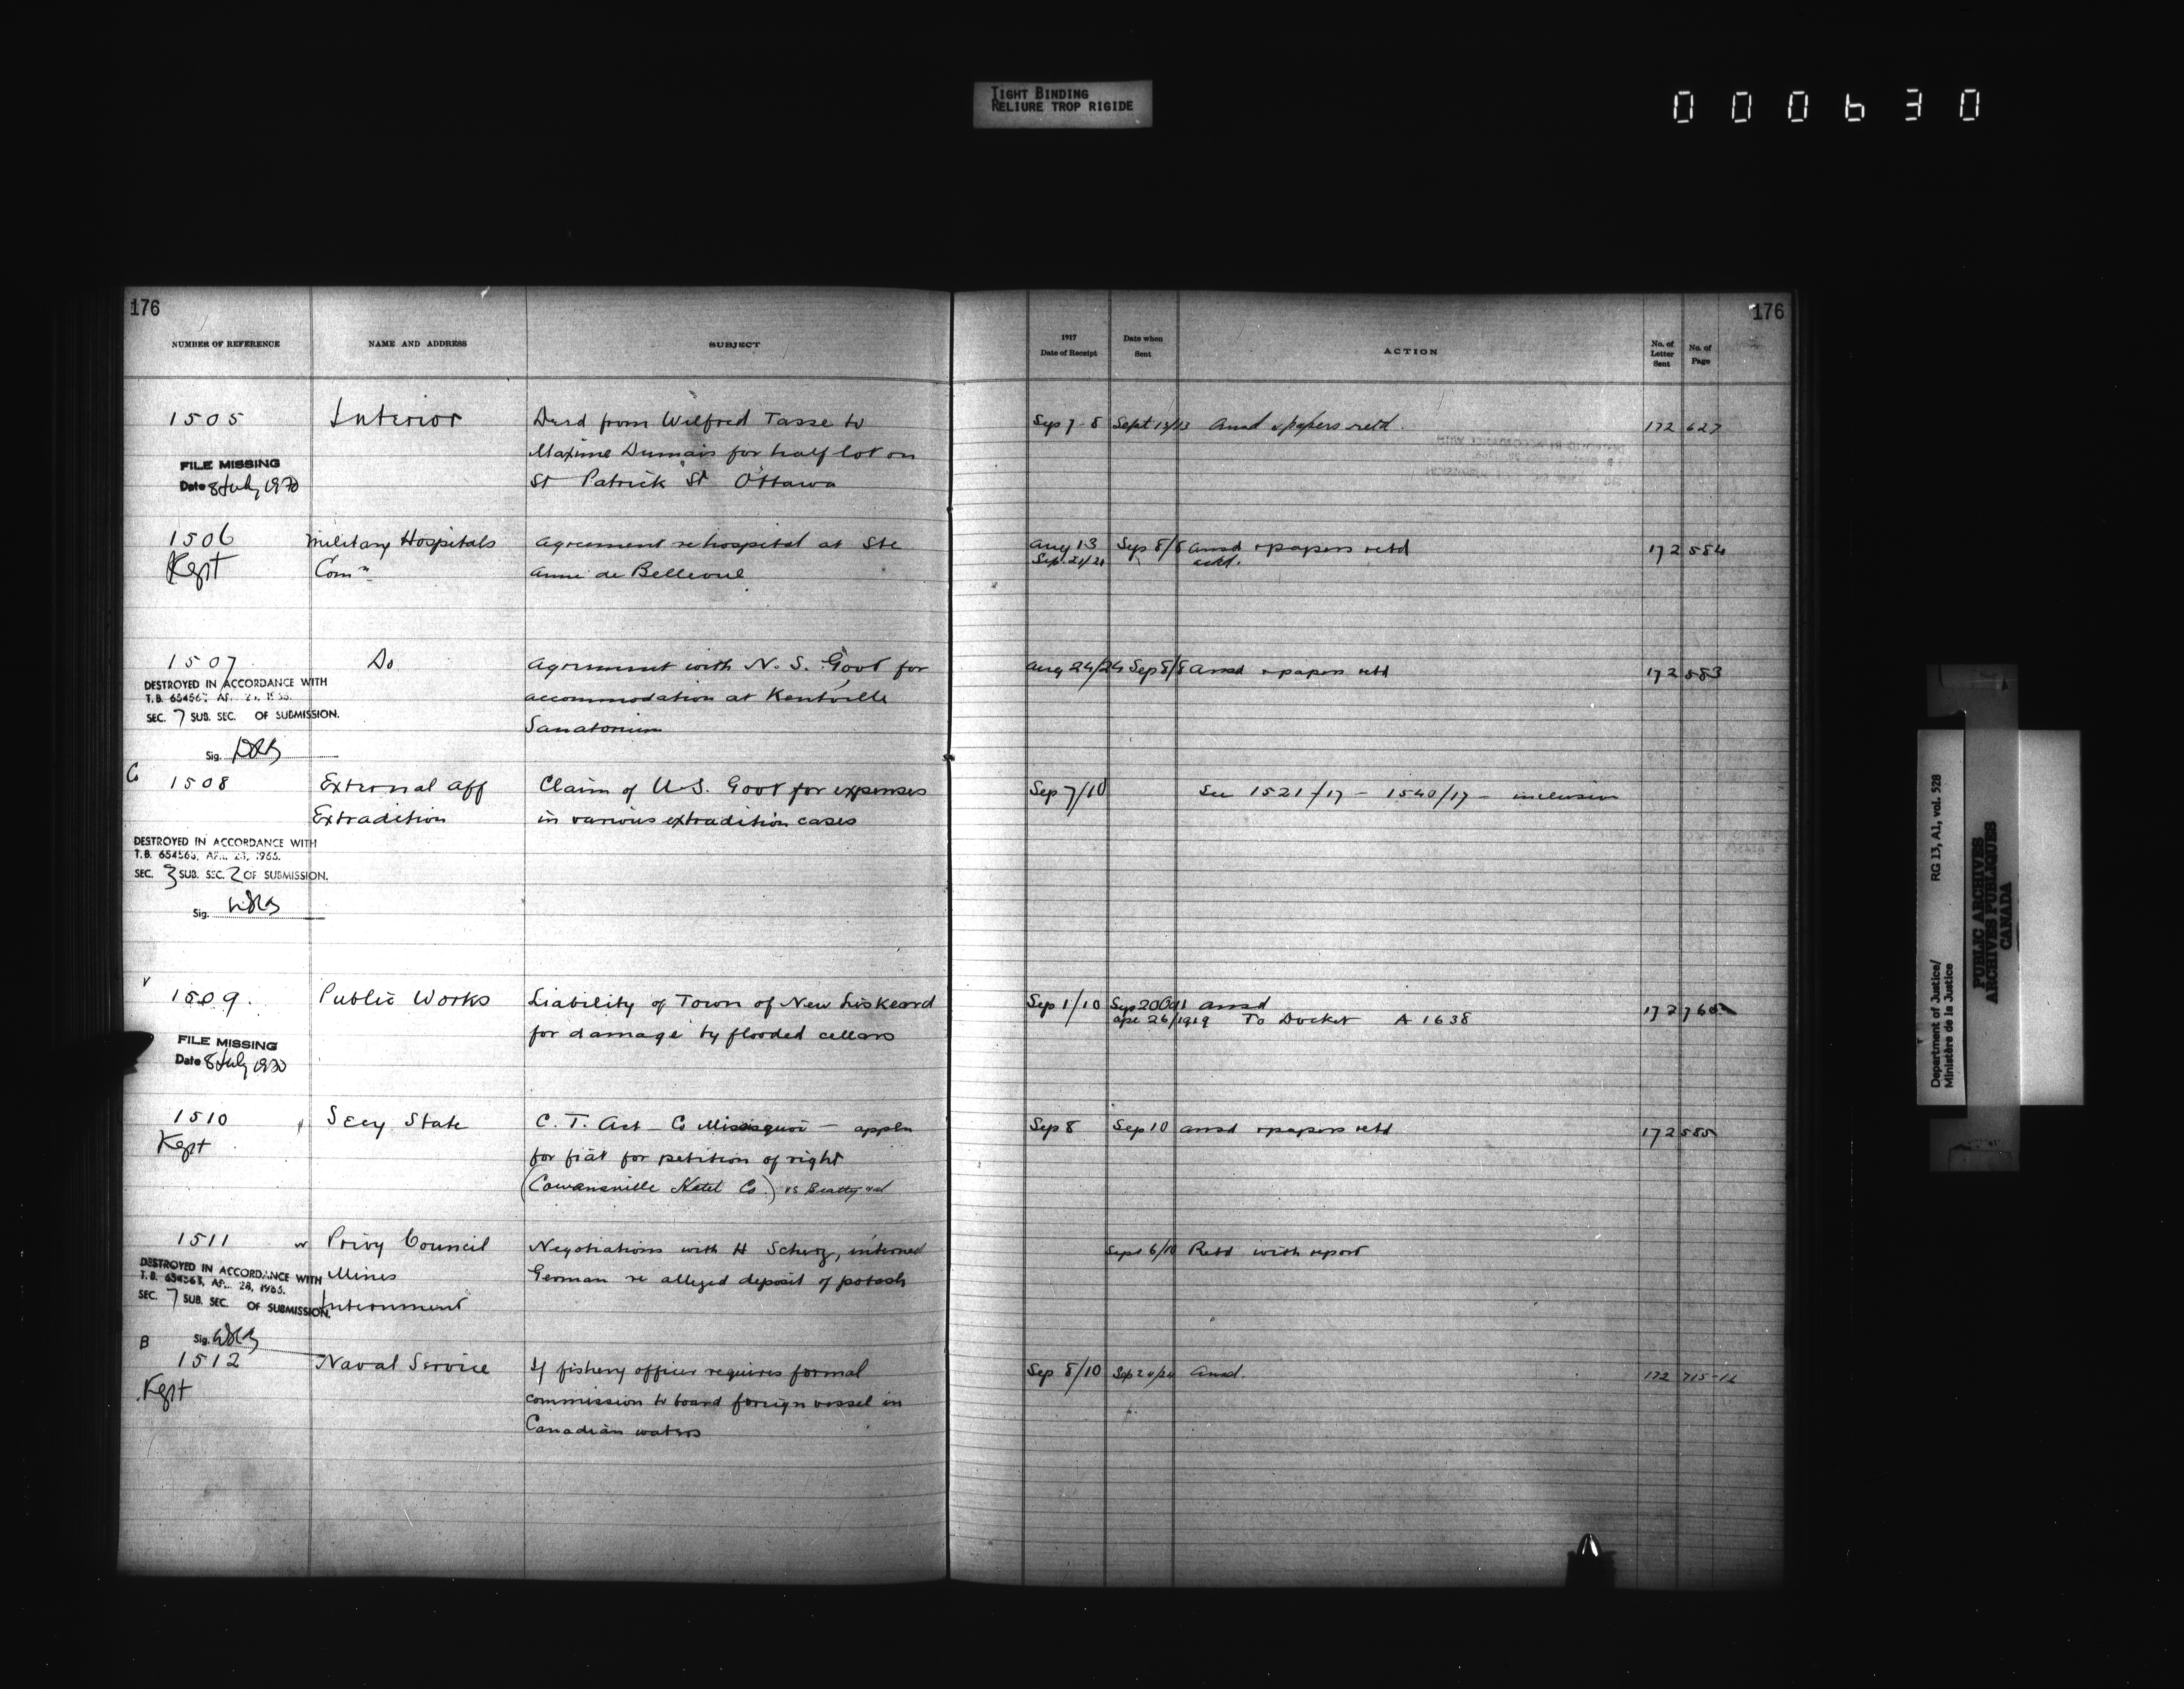 TIGHT BINDING
RELIURE TROP RIGIDE
000630
176
NUMBER OF REFERENCE
NAME AND ADDRESS
SUBJECT
1505
Interior
Deed from Wilfred Tasse to
Maxime Dumais for half lot on
St Patrick St Ottawa
FILE MISSING
Date 8 July 1970
1506
Kept
Military Hospitals
Comn
Agreement re hospital at Ste
Anne de Bellevue
1507
Do
Agreement with N. S. Govt for
accommodation at Kentville
Sanatorium
DESTROYED IN ACCORDANCE WITH
T.B. 654563, APR. 23, 1965.
SEC. 7 SUB. SEC. OF SUBMISSION.
Sig.
C
1508
External Aff
Extradition
Claim of U.S. Govt for expenses
in various extradition cases
DESTROYED IN ACCORDANCE WITH
T.B. 654563, APR. 23, 1965.
SEC. 3 SUB. SEC. 2 OF SUBMISSION.
Sig.
1509.
Public Works
Liability of Town of New Liskeard
for damage by flooded cellars
FILE MISSING
Date 8 July 1970
1510
Kept
Secy State
C. T. Act - Co Missisquoi - appln
for fiat for petition of right
(Cowansville Hotel Co.) vs Beatty et al
1511
Privy Council
Mines
Internment
Negotiations with H Scherz, interned
German re alleged deposit of potash
DESTROYED IN ACCORDANCE WITH
T.B. 654563, APR. 23, 1965.
SEC. 7 SUB. SEC. OF SUBMISSION.
Sig.
B
1512
Kept
Naval Service
If fishery officer requires formal
commission to board foreign vessel in
Canadian waters
176
1917
Date of Receipt
Date when
Sent
ACTION
No. of
Letter
Sent
No. of
Page
Sep 7-8 Sept 13/13 Ansd & papers retd. 172 627
Aug 13 Sep 8/8 Ansd & papers retd 172 584
Sep 21/21 ackd.
Aug 24/24 Sep 8/8 Ansd & papers retd 172 583
Sep 7/10 See 1521/17 - 1540/17 - inclusive
Sep 1/10 Sep 20 Ansd 172
Apr 26/1919 To Docket A 1638
Sep 8 Sep 10 Ansd & papers retd 172 585
Sept 6/10 Retd with report
Sep 8/10 Sep 20/24 Ansd. 172 715-16
Department of Justice/
Ministère de la Justice
RG 13, A1, vol. 528
PUBLIC ARCHIVES
ARCHIVES PUBLIQUES
CANADA